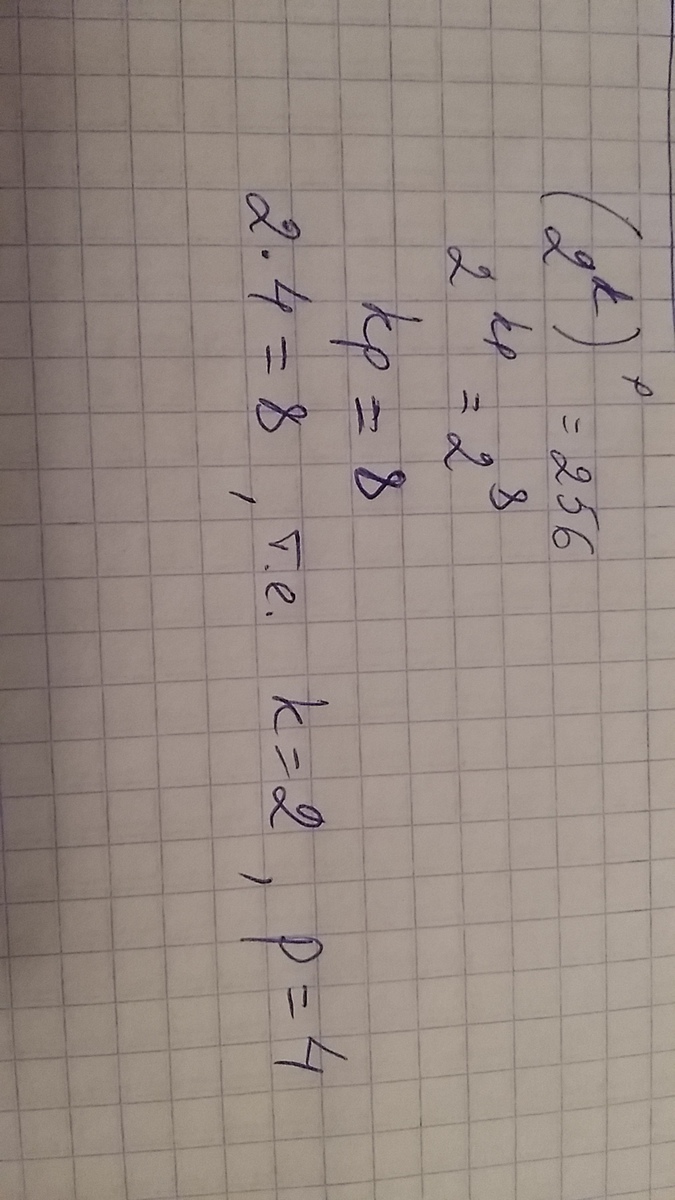 (2^k)^p = 256
2^kp = 2^8
kp = 8
2·4 = 8, т.е. k=2, p=4